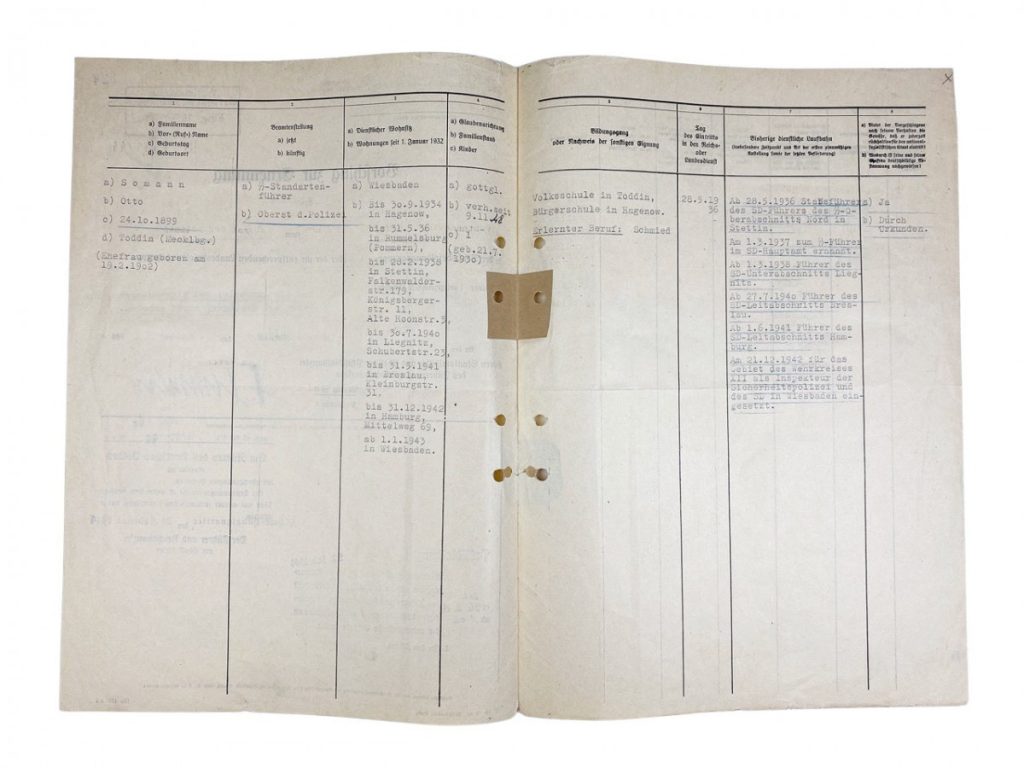 1
a) Familienname
b) Vor- (Ruf-) Name
c) Geburtstag
d) Geburtsort
a) Somann
b) Otto
c) 24.10.1899
d) Toddin (Mecklbg.)
(Ehefrau geboren am
19.2.1902)
2
Beamtenstellung
a) jetzt
b) künftig
a) ᛋᛋ-Standarten-
führer
b) Oberst d.Polizei
3
a) Dienstlicher Wohnsitz
b) Wohnungen seit 1. Januar 1932
a) Wiesbaden
b) Bis 30.9.1934
in Hagenow,
bis 31.5.36
in Rummelsburg
(Pommern),
bis 28.2.1938
in Stettin,
Falkenwalder-
str.179,
Königsberger-
str. 11,
Alte Roonstr.3,
bis 30.7.1940
in Liegnitz,
Schubertstr.23,
bis 31.5.1941
in Breslau,
Kleinburgstr.
31,
bis 31.12.1942
in Hamburg,
Mittelweg 69,
ab 1.1.1943
in Wiesbaden.
4
a) Glaubensrichtung
b) Familienstand
c) Kinder
a) gottgl.
b) verh.seit
9.11.
c) 1
(geb.21.7.
1930)
5
Bildungsgang
oder Nachweis der sonstigen Eignung
Volksschule in Toddin,
Bürgerschule in Hagenow.
Erlernter Beruf: Schmied
6
Tag
des Eintritts
in den Reichs-
oder
Landesdienst
28.5.19
36
7
Bisherige dienstliche Laufbahn
Ab 28.5.1936 Stabsführer
des SD-Führers des ᛋᛋ-O-
berabschnitts Nord in
Stettin.
Am 1.3.1937 zum ᛋᛋ-Führer
im SD-Hauptamt ernannt.
Ab 1.3.1938 Führer des
SD-Unterabschnitts Lieg-
nitz.
Ab 27.7.1940 Führer des
SD-Leitabschnitts Bres-
lau.
Ab 1.6.1941 Führer des
SD-Leitabschnitts Ham-
burg.
Am 21.12.1942 für das
Gebiet des Wehrkreises
XII als Inspekteur der
Sicherheitspolizei und
des SD in Wiesbaden ein-
gesetzt.
8
a) Ja
b) Durch
Urkunden.
x